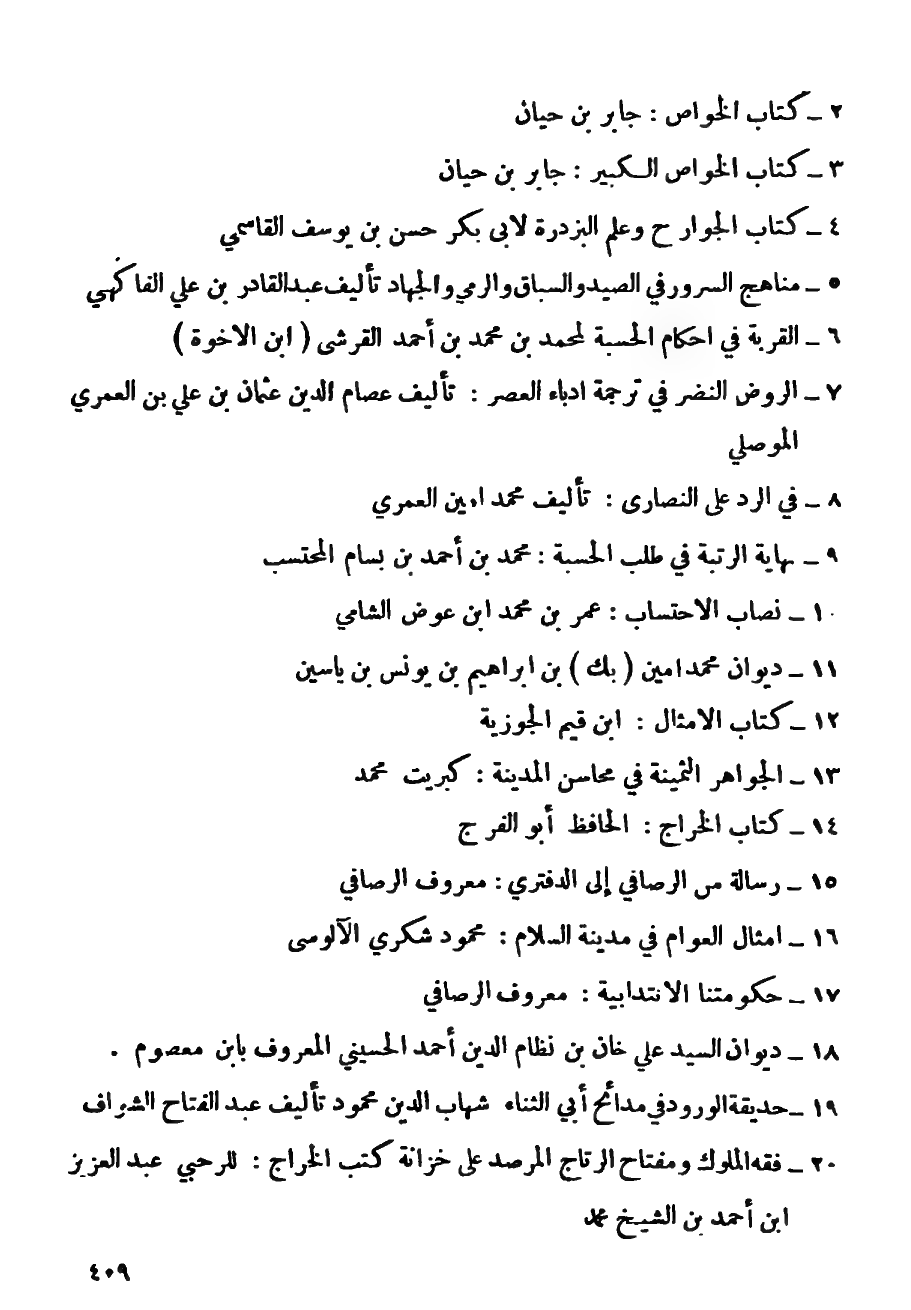 ٢ ــ كتاب الخواص : جابر بن حيان
٣ ــ كتاب الخواص الكبير : جابر بن حيان
٤ ــ كتاب الجوارح وعلم البزدرة لابى بكر حسن بن يوسف القاسمي
٥ ــ مناهج السرور في الصيد والسباق والرمي والجهاد تأليف عبدالقادر بن علي الفاكهي
٦ ــ القربة في احكام الحسبة لمحمد بن محمد بن أحمد القرشى ( ابن الاخوة )
٧ ــ الروض النضر في ترجمة ادباء العصر : تأليف عصام الدين عثمان بن علي بن العمري
الموصلي
٨ ــ في الرد على النصارى : تأليف محمد امين العمري
٩ ــ نهاية الرتبة في طلب الحسبة : محمد بن أحمد بن بسام المحتسب
١٠ ــ نصاب الاحتساب : عمر بن محمد ابن عوض الشامي
١١ ــ ديوان محمد امين ( بك ) بن ابراهيم بن يونس بن ياسين
١٢ ــ كتاب الامثال : ابن قيم الجوزية
١٣ ــ الجواهر الثمينة في محاسن المدينة : كبريت محمد
١٤ ــ كتاب الخراج : الحافظ أبو الفرج
١٥ ــ رسالة من الرصافي إلى الدفتري : معروف الرصافي
١٦ ــ امثال العوام في مدينة السلام : محمود شكري الآلوسى
١٧ ــ حكومتنا الانتدابية : معروف الرصافي
١٨ ــ ديوان السيد علي خان بن نظام الدين أحمد الحسيني المعروف بابن معصوم .
١٩ ــ حديقة الورود في مدائح أبي الثناء شهاب الدين محمود تأليف عبد الفتاح الشواف
٢٠ ــ فقه الملوك ومفتاح الرتاج المرصد على خزانة كتب الخراج : للرحبي عبد العزيز
ابن أحمد بن الشيخ محمد
٤٠٩